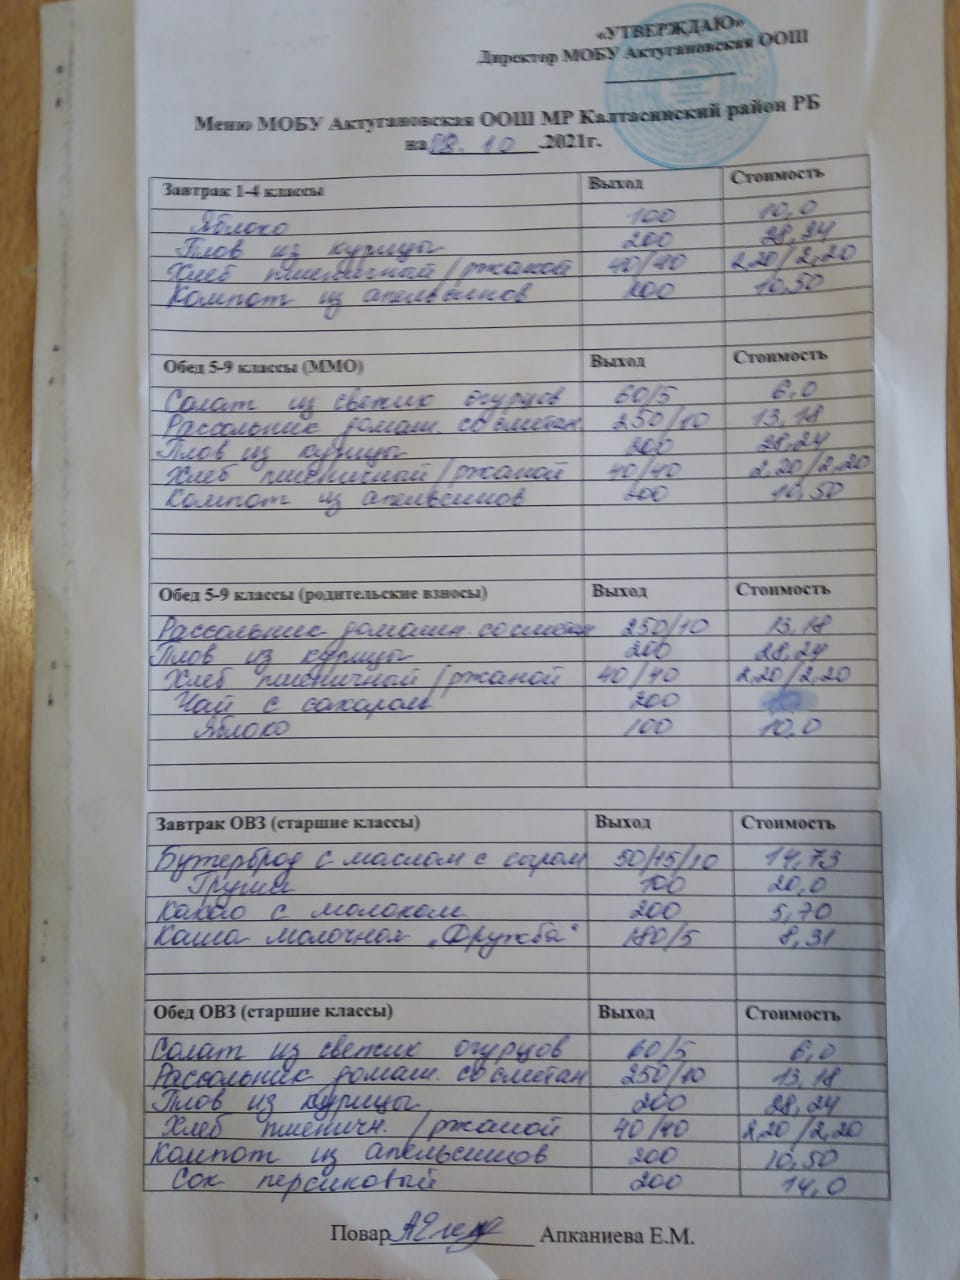 «УТВЕРЖДАЮ»
Директор МОБУ Актугановская ООШ
Меню МОБУ Актугановская ООШ МР Калтасинский район РБ
на 18. 10 .2021г.
Завтрак 1-4 классы Выход Стоимость
Яблоко 100 10,0
Плов из курицы 200 28,24
Хлеб пшеничной/ржаной 40/40 2,20/2,20
Компот из апельсинов 200 10,50
Обед 5-9 классы (ММО) Выход Стоимость
Салат из свежих огурцов 60/5 6,0
Рассольник домаш. со сметан 250/10 13,18
Плов из курицы 200 28,24
Хлеб пшеничной/ржаной 40/40 2,20/2,20
Компот из апельсинов 200 10,50
Обед 5-9 классы (родительские взносы) Выход Стоимость
Рассольник домашн. со сметан 250/10 13,18
Плов из курицы 200 28,24
Хлеб пшеничной/ржаной 40/40 2,20/2,20
Чай с сахаром 200
Яблоко 100 10,0
Завтрак ОВЗ (старшие классы) Выход Стоимость
Бутерброд с маслом с сыром 50/15/10 14,73
Груша 100 20,0
Какао с молоком 200 5,70
Каша молочная „Дружба" 180/5 8,31
Обед ОВЗ (старшие классы) Выход Стоимость
Салат из свежих огурцов 60/5 6,0
Рассольник домаш. со сметан 250/10 13,18
Плов из курицы 200 28,24
Хлеб пшеничн. /ржаной 40/40 2,20/2,20
Компот из апельсинов 200 10,50
Сок персиковый 200 14,0
Повар Апканиева Е.М.